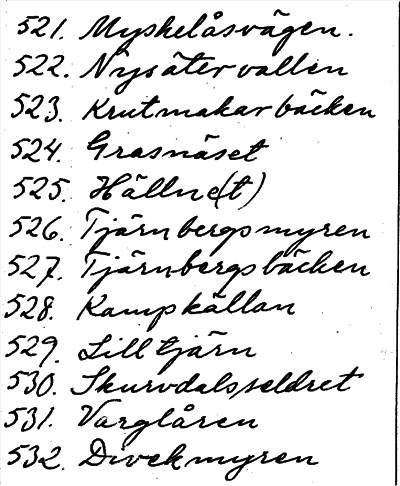 521. Myskelåsvägen.
522. Nysätervallen
523. Krutmakarbäcken
524. Grasnäset
525. Hällne(t)
526. Tjärnbergsmyren
527. Tjärnbergsbäcken
528. Kampkällan
529. Lilltjärn
530. Skurvdalsseldret
531. Varglåren
532. Divekmyren